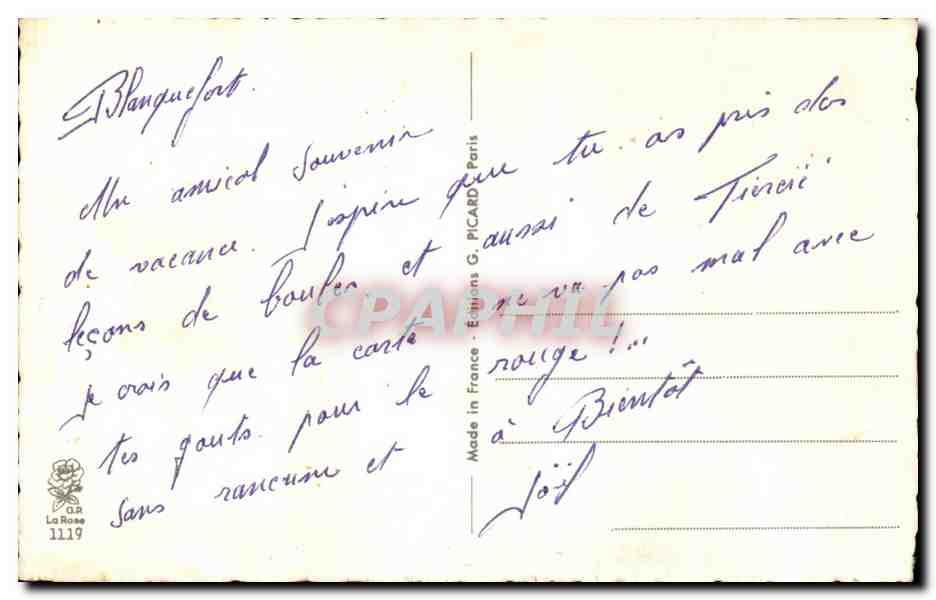 Blanquefort.
Un amical souvenir
de vacance. J'espère que tu as pris des
leçons de boules et aussi de Tiercé
je crois que la carte ne va pas mal avec
tes gouts pour le rouge !...
sans rancune et à Bientôt
Joël
Made in France - Editions G. PICARD, Paris
La Rose
1119
CPAPHIL